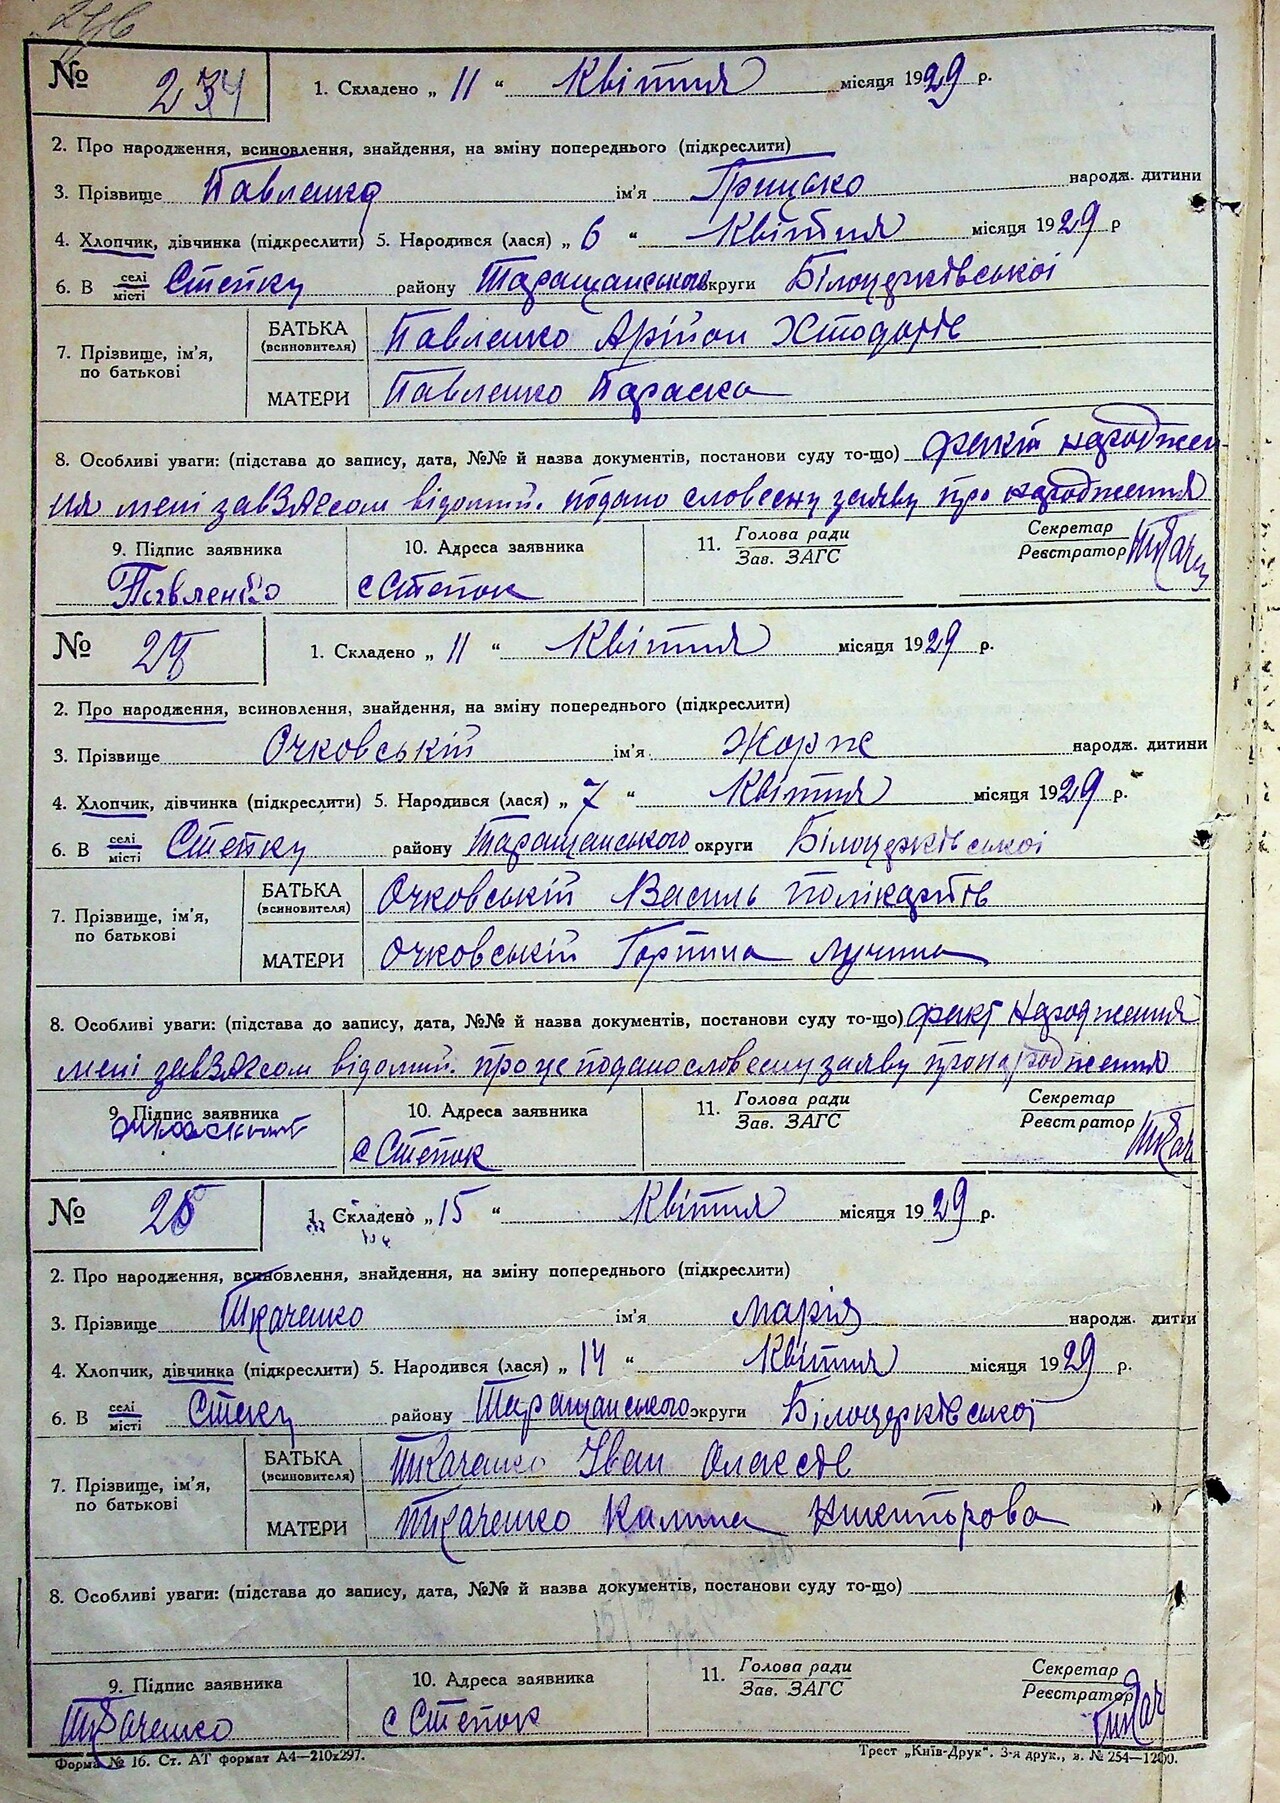 № 234 1. Складено „ 11 “ Квітня місяця 1929 р.
2. Про народження, всиновлення, знайдення, на зміну попереднього (підкреслити)
3. Прізвище Павленко ім'я Грицько народж. дитини
4. Хлопчик, дівчинка (підкреслити) 5. Народився (лася) „ 6 “ Квітня місяця 1929 р
6. В селі місті Степку району Таращанського округи Білоцерківської
7. Прізвище, ім'я, по батькові БАТЬКА (всиновителя) Павленко Арійон Хтодотів
МАТЕРИ Павленко Параска
8. Особливі уваги: (підстава до запису, дата, №№ й назва документів, постанови суду то-що) факт народжен-
ня мені завЗАГсом відомий. подано словесну заяву про народження
9. Підпис заявника 10. Адреса заявника 11. Голова ради Зав. ЗАГС Секретар Реєстратор
Павленко с Степок
№ 25 1. Складено „ 11 “ Квітня місяця 1929 р.
2. Про народження, всиновлення, знайдення, на зміну попереднього (підкреслити)
3. Прізвище Очковській ім'я Жорж народж. дитини
4. Хлопчик, дівчинка (підкреслити) 5. Народився (лася) „ 7 “ Квітня місяця 1929 р.
6. В селі місті Степку району Таращанського округи Білоцерківської
7. Прізвище, ім'я, по батькові БАТЬКА (всиновителя) Очковській Василь Полікарпів
МАТЕРИ Очковській Горпина Лучина
8. Особливі уваги: (підстава до запису, дата, №№ й назва документів, постанови суду то-що) факт народження
мені завЗАГсом відомий. про це подано словесну заяву про народження
9. Підпис заявника 10. Адреса заявника 11. Голова ради Зав. ЗАГС Секретар Реєстратор
с Степок
№ 26 1. Складено „ 15 “ Квітня місяця 1929 р.
2. Про народження, всиновлення, знайдення, на зміну попереднього (підкреслити)
3. Прізвище Ткаченко ім'я Марія народж. дитини
4. Хлопчик, дівчинка (підкреслити) 5. Народився (лася) „ 14 “ Квітня місяця 1929 р.
6. В селі місті Степку району Таращанського округи Білоцерківської
7. Прізвище, ім'я, по батькові БАТЬКА (всиновителя) Ткаченко Іван Олексів
МАТЕРИ Ткаченко Килина Никипорова
8. Особливі уваги: (підстава до запису, дата, №№ й назва документів, постанови суду то-що)
9. Підпис заявника 10. Адреса заявника 11. Голова ради Зав. ЗАГС Секретар Реєстратор
Ткаченко с Степок
Форма № 16. Ст. АТ формат А4—210x297. Трест „Київ-Друк“. 3-я друк., в. № 254—1200.